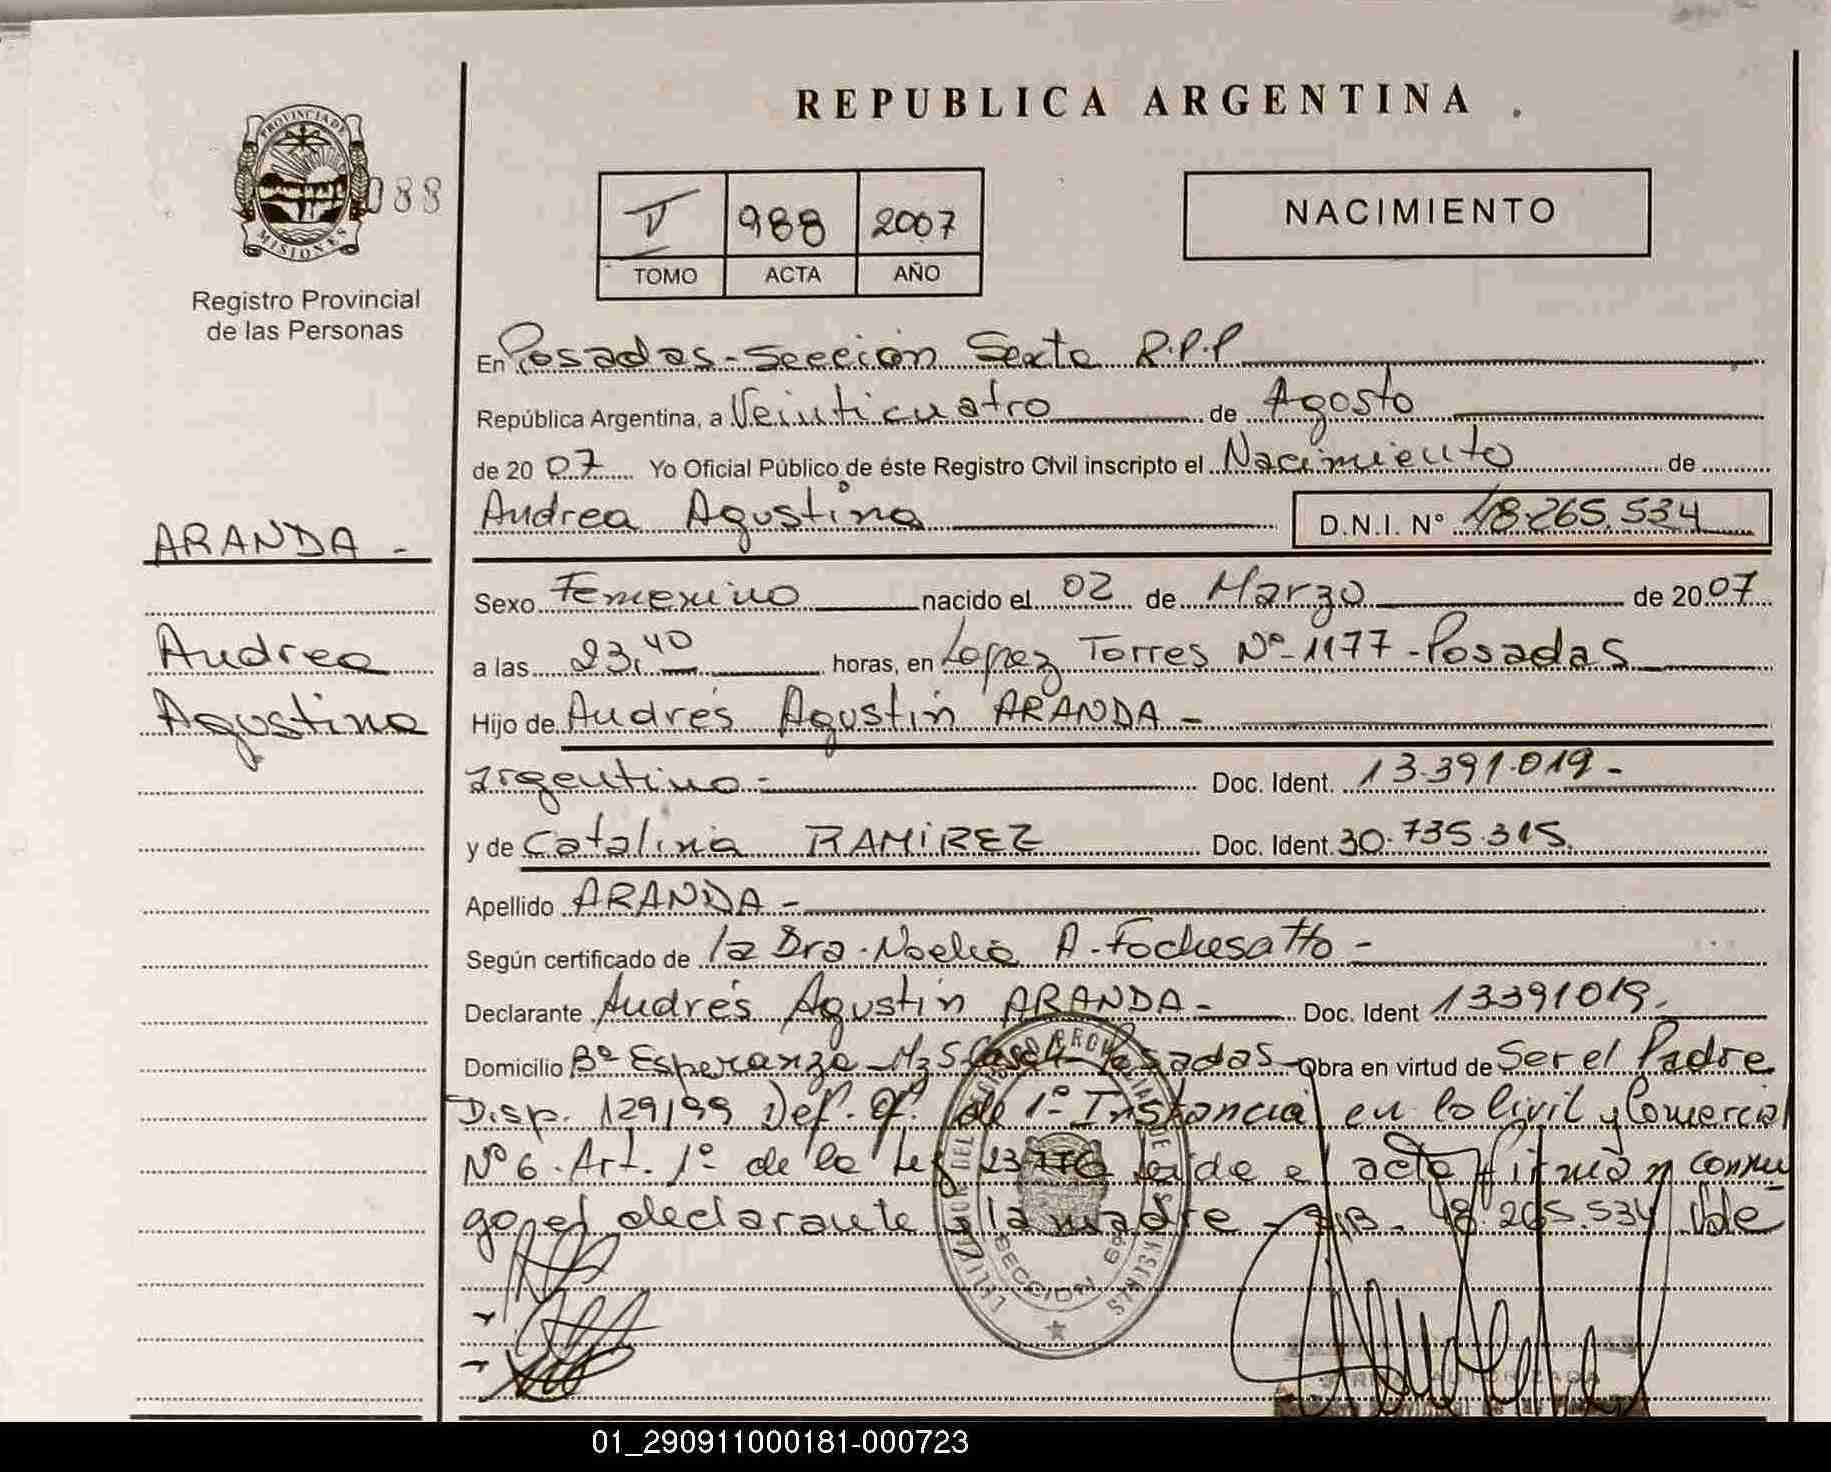 REPUBLICA ARGENTINA
PROVINCIA DE
MISIONES
088
Registro Provincial
de las Personas
V 988 2007
TOMO ACTA AÑO
NACIMIENTO
En Posadas - Sección Sexta R.P.P
República Argentina, a Veinticuatro de Agosto
de 20 07 Yo Oficial Público de éste Registro Civil inscripto el Nacimiento de
Andrea Agustina D.N.I. N° 48.265.534
ARANDA -
Andrea
Agustina
Sexo Femenino nacido el 02 de Marzo de 20 07
a las 23,40 horas, en Lopez Torres Nº 1177 - Posadas
Hijo de Andrés Agustín ARANDA -
argentino - Doc. Ident. 13.391.019 -
y de Catalina RAMIREZ Doc. Ident. 30.735.315
Apellido ARANDA -
Según certificado de la Dra. Noelia A. Fochesatto -
Declarante Andrés Agustín ARANDA - Doc. Ident 13391019
Domicilio Bº Esperanza Mz 5 Posadas Obra en virtud de Ser el Padre
Disp. 129/99 Def. Of. de 1º Instancia en lo Civil y Comercial
Nº 6. Art. 1º de la Ley 23776 leída el acta firman conmi
go el declarante y la madre - 48.265.534 Vale
SECCION 6ª
01_290911000181-000723